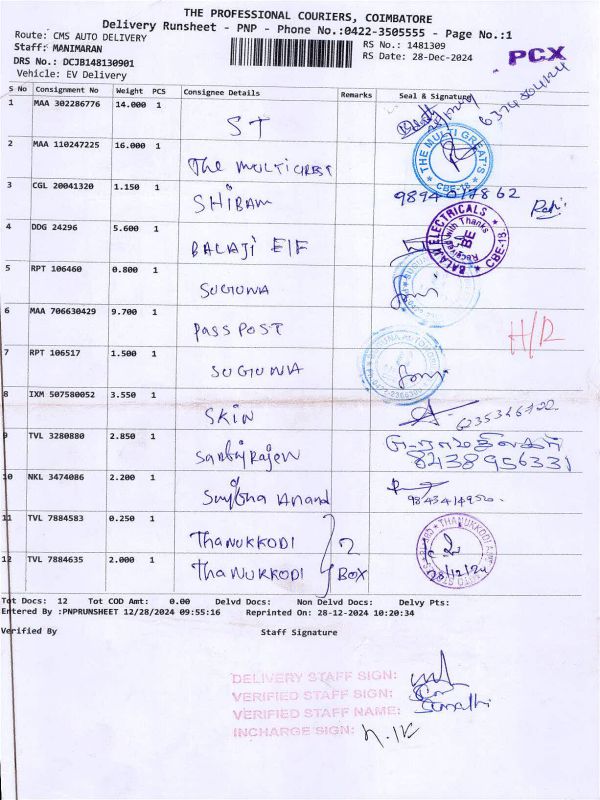 THE PROFESSIONAL COURIERS, COIMBATORE
Delivery Runsheet - PNP - Phone No.:0422-3505555 - Page No.:1
Route: CMS AUTO DELIVERY
Staff: MANIMARAN
DRS No.: DCJB148130901
Vehicle: EV Delivery
RS No.: 1481309
RS Date: 28-Dec-2024
PCX
S No Consignment No Weight PCS Consignee Details Remarks Seal & Signature
1 MAA 302286776 14.000 1 ST
2 MAA 110247225 16.000 1 The MULTIGREST
THE MULTI GREAT'S
CBE-18
3 CGL 20041320 1.150 1 SHIBAM
4 DDG 24296 5.600 1 BALAJI E/F
BALAJI ELECTRICALS
Received with Thanks
BE
CBE-18
5 RPT 106460 0.800 1 SUGUNA
6 MAA 706630429 9.700 1 Pass Post
H/R
7 RPT 106517 1.500 1 SUGUNA
8 IXM 507580052 3.550 1 SKIN
9 TVL 3280880 2.850 1
8438956331
10 NKL 3474086 2.200 1 Anand
11 TVL 7884583 0.250 1 THANUKKODI
12 TVL 7884635 2.000 1 THANUKKODI
2
BOX
Tot Docs: 12 Tot COD Amt: 0.00 Delvd Docs: Non Delvd Docs: Delvy Pts:
Entered By :PNPRUNSHEET 12/28/2024 09:55:16 Reprinted On: 28-12-2024 10:20:34
Verified By Staff Signature
DELIVERY STAFF SIGN:
VERIFIED STAFF SIGN:
VERIFIED STAFF NAME: Sumathi
INCHARGE SIGN: